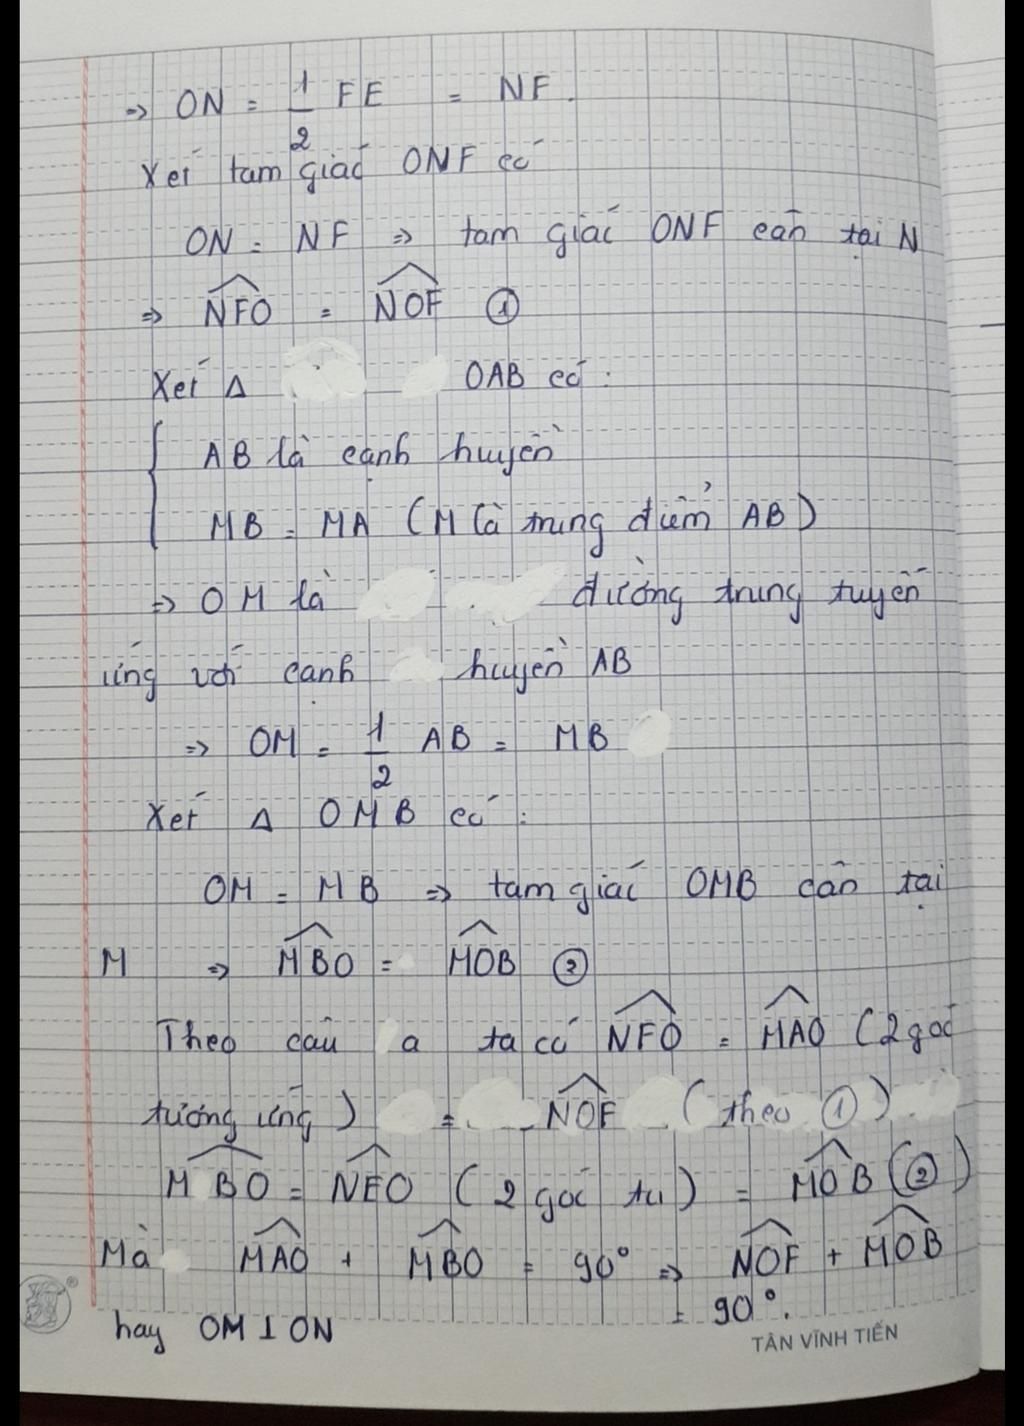 => ON = 1/2 FE = NF.
Xét tam giác ONF có
ON = NF => tam giác ONF cân tại N
=> NFO = NOF ①
Xét Δ OAB có:
AB là cạnh huyền
MB = MA (M là trung điểm AB)
=> OM là đường trung tuyến
ứng với cạnh huyền AB
=> OM = 1/2 AB = MB
Xét Δ OMB có:
OM = MB => tam giác OMB cân tại
M => MBO = MOB ②
Theo câu a ta có NFO = MAO (2 góc
tương ứng) = NOF (theo ①)
MBO = NEO (2 góc tư) = MOB (②)
Mà MAO + MBO = 90° => NOF + MOB
= 90°.
hay OM ⊥ ON
TÂN VĨNH TIẾN